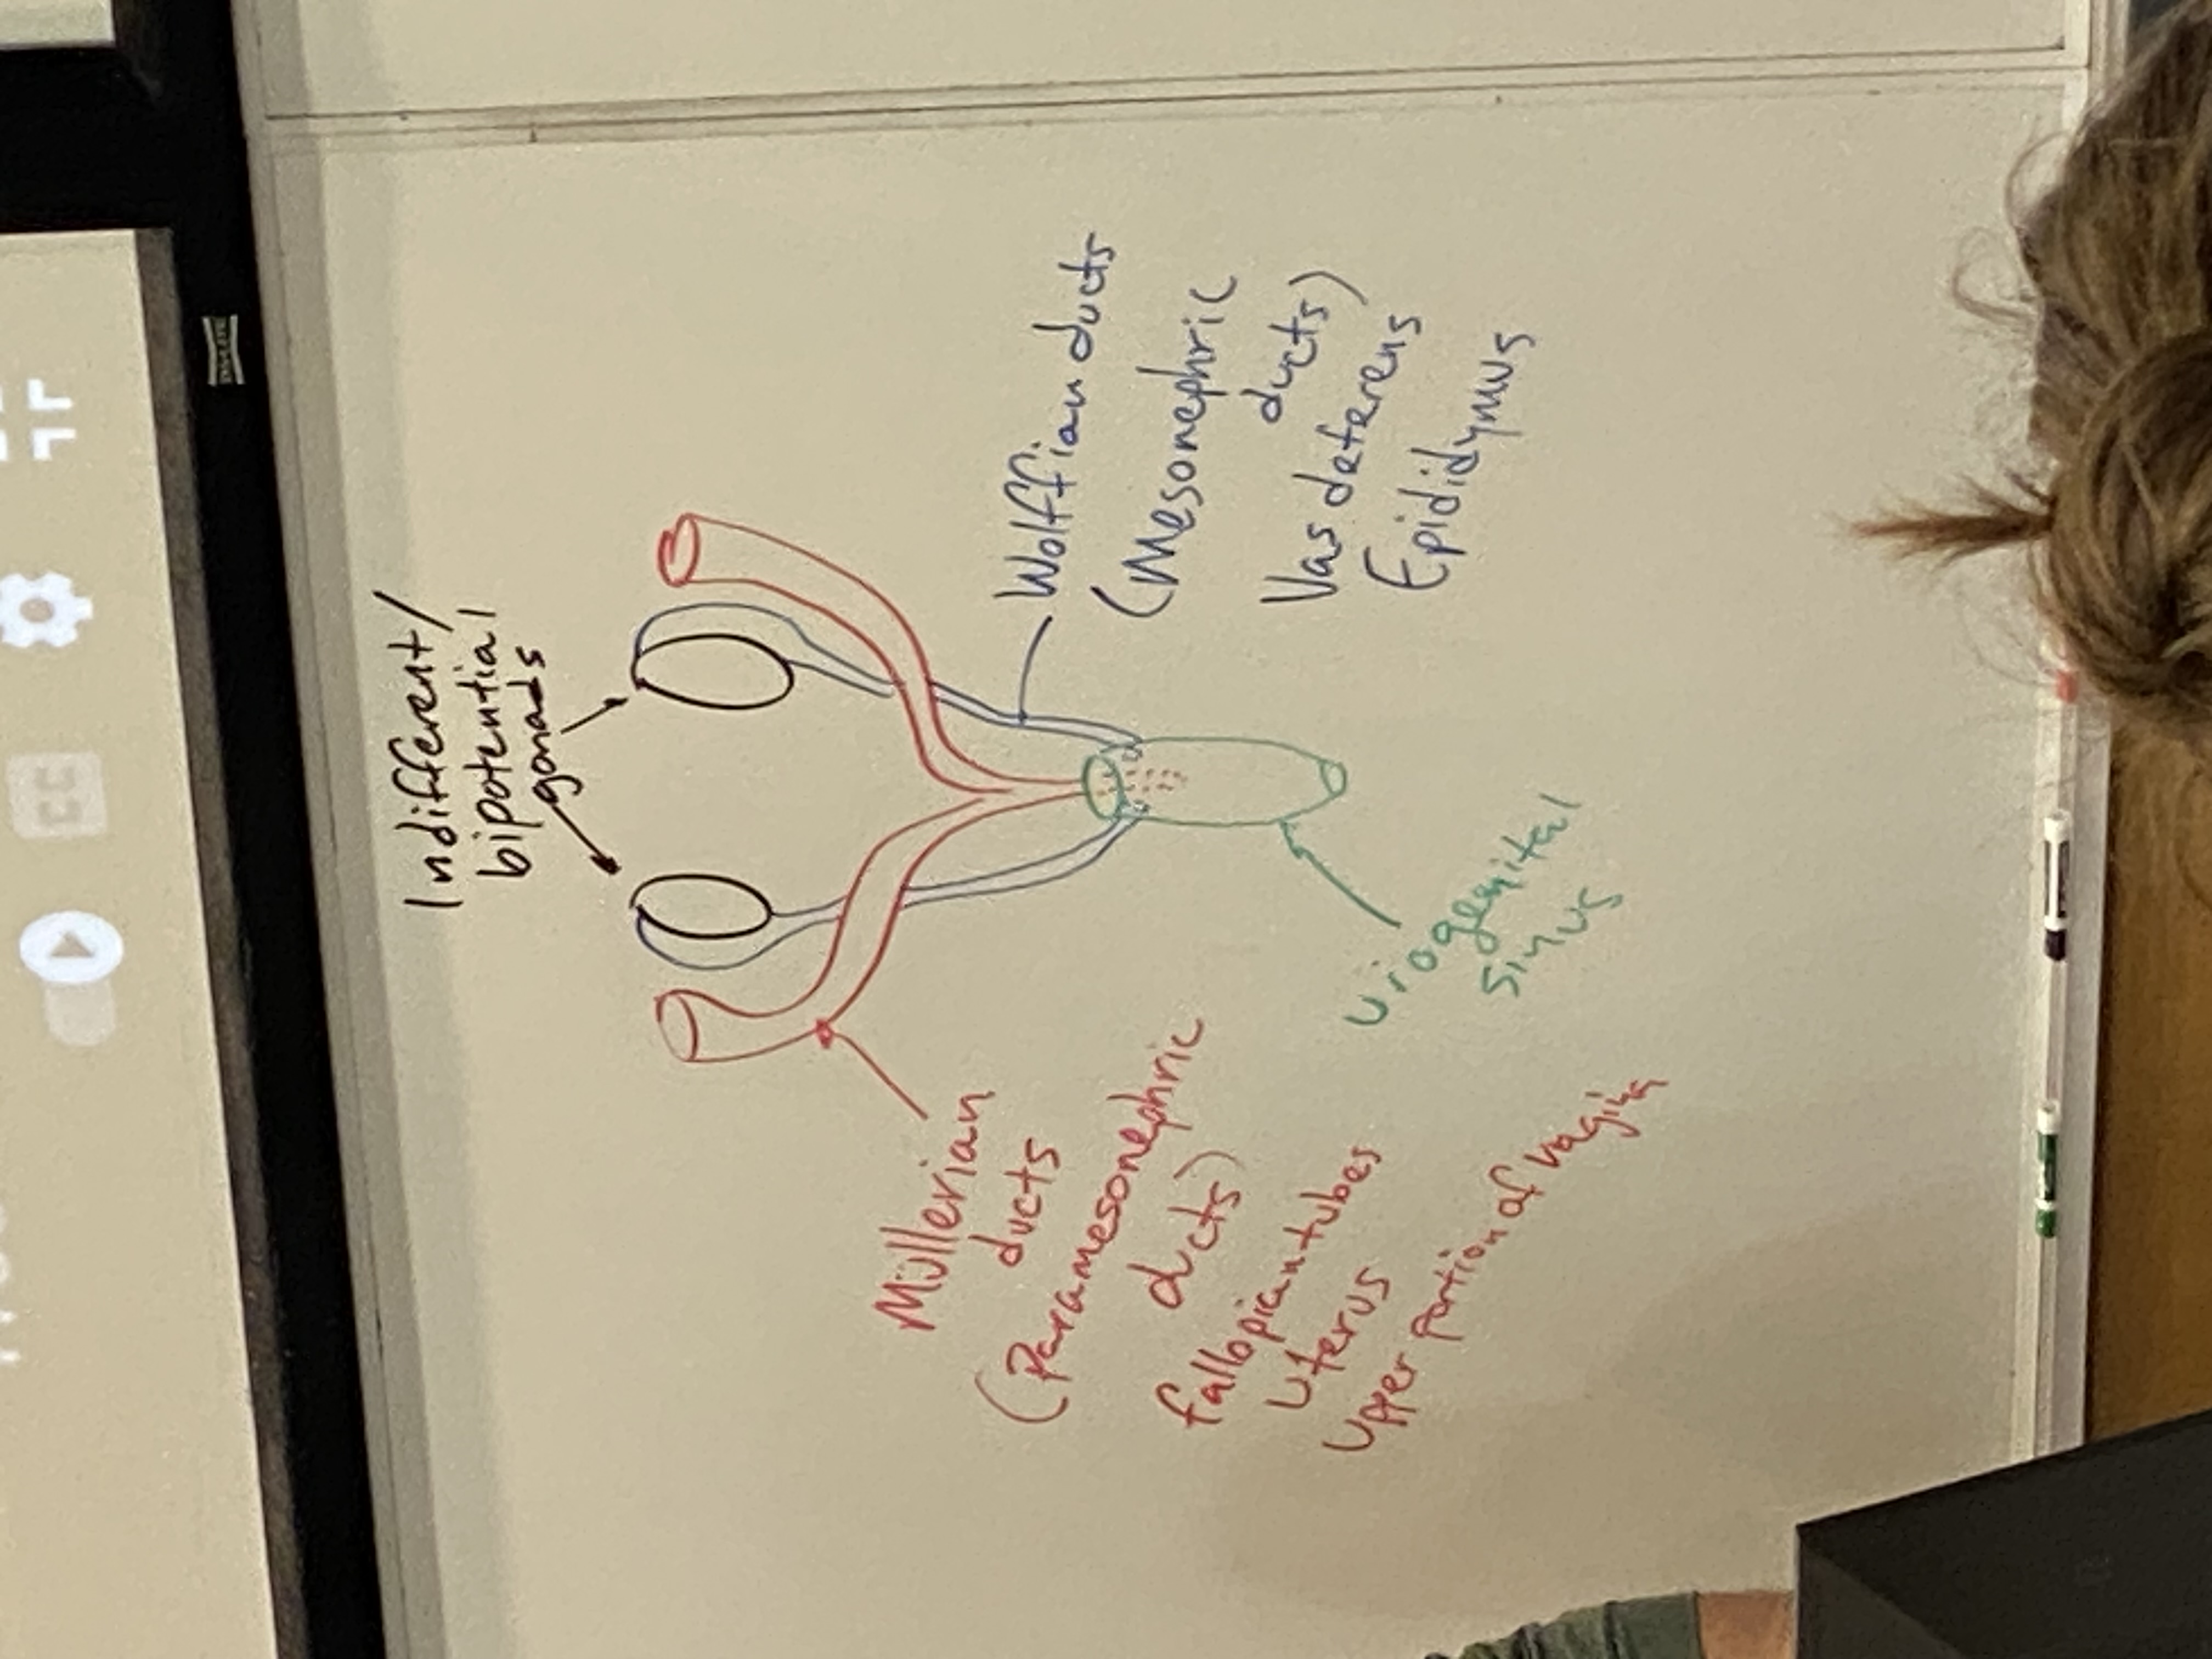 Indifferent/
bipotential
gonads
Müllerian
ducts
(Paramesonephric
ducts)
fallopian tubes
Uterus
Upper portion of vagina
Wolffian ducts
(Mesonephric
ducts)
Vas deferens
Epididymus
Urogenital
sinus
CC